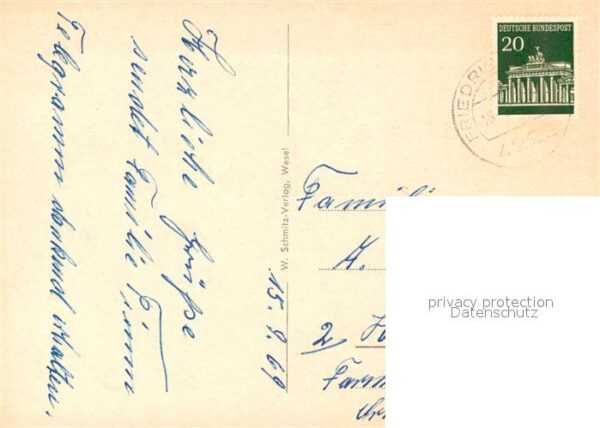 Herzliche Grüße
sendet Familie Timm
Telegramm dankend erhalten.
15. 9. 69
W. Schmitz-Verlag, Wesel
DEUTSCHE BUNDESPOST
20
FRIEDRI
Famili
A.
2
Farm
privacy protection
Datenschutz